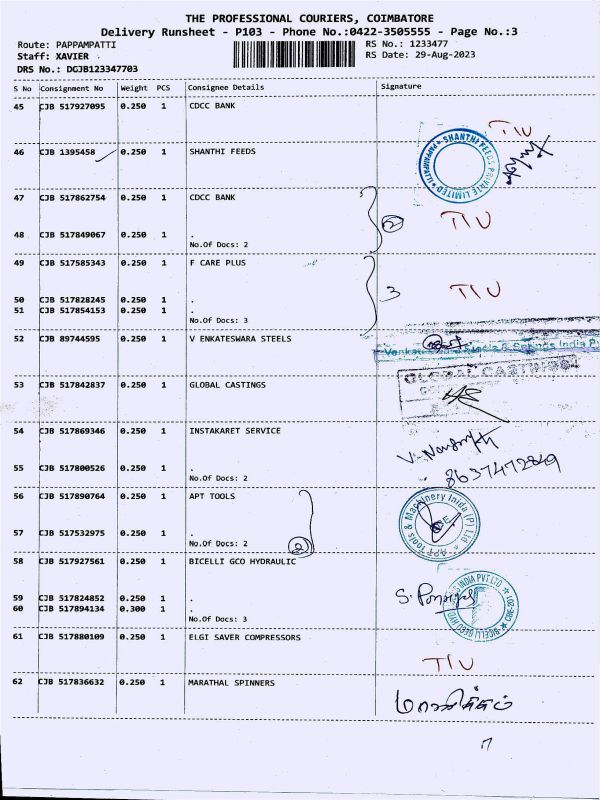 THE PROFESSIONAL COURIERS, COIMBATORE
Delivery Runsheet - P103 - Phone No.:0422-3505555 - Page No.:3
Route: PAPPAMPATTI RS No.: 1233477
Staff: XAVIER RS Date: 29-Aug-2023
DRS No.: DGJB123347703
S No Consignment No Weight PCS Consignee Details Signature
45 CJB 517927095 0.250 1 CDCC BANK
TIU
46 CJB 1395458 0.250 1 SHANTHI FEEDS
SHANTHI FEEDS PRIVATE LIMITED * PAPPAMPATTI *
47 CJB 517862754 0.250 1 CDCC BANK
2 TIU
48 CJB 517849067 0.250 1 .
No.Of Docs: 2
49 CJB 517585343 0.250 1 F CARE PLUS
3 TIU
50 CJB 517828245 0.250 1 .
51 CJB 517854153 0.250 1 .
No.Of Docs: 3
52 CJB 89744595 0.250 1 V ENKATESWARA STEELS
53 CJB 517842837 0.250 1 GLOBAL CASTINGS
GLOBAL CASTINGS
54 CJB 517869346 0.250 1 INSTAKARET SERVICE
55 CJB 517800526 0.250 1 .
No.Of Docs: 2
56 CJB 517890764 0.250 1 APT TOOLS
APT Tools & Machinery Inida (P) Ltd
57 CJB 517532975 0.250 1 .
No.Of Docs: 2
2
58 CJB 517927561 0.250 1 BICELLI GCO HYDRAULIC
59 CJB 517824852 0.250 1 .
60 CJB 517894134 0.300 1 .
No.Of Docs: 3
61 CJB 517880109 0.250 1 ELGI SAVER COMPRESSORS
TIU
62 CJB 517836632 0.250 1 MARATHAL SPINNERS
மாணிக்கம்